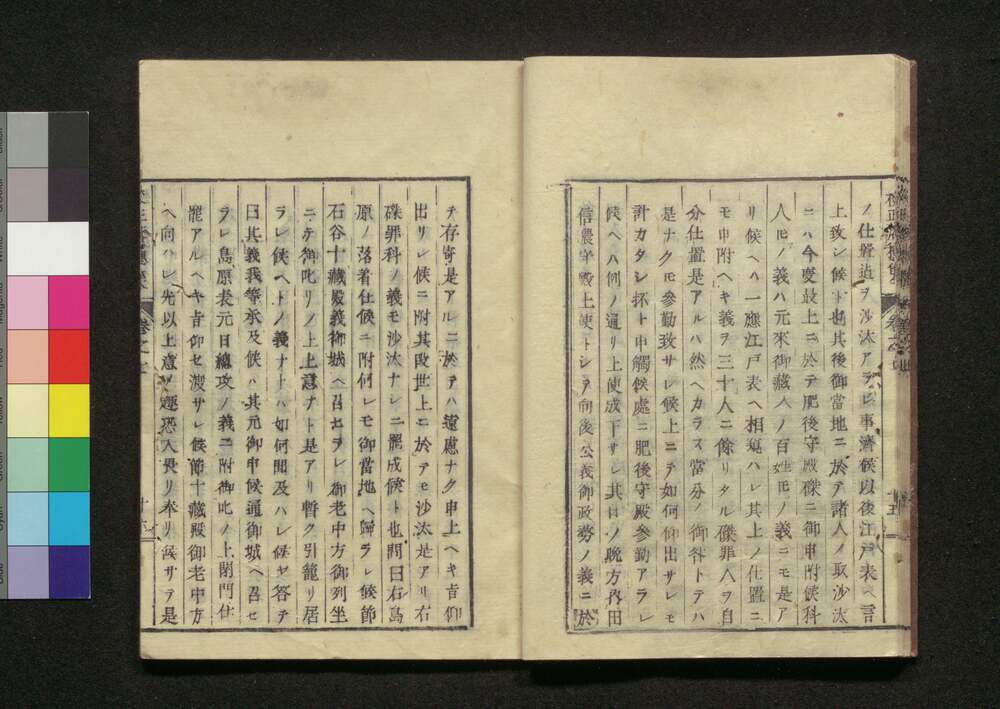 ノ仕置迄ヲ沙汰アラレ事濟候以後江戸表ヘ言
上致シ候ト也其後御當地ニ於テ諸人ノ取沙汰
ニハ今度最上ニ於テ肥後守殿磔ニ御申附候科
人ドモノ義ハ元來御藏入ノ百姓ドモノ義ニモ是ア
リ候ヘハ一應江戸表ヘ相窺ハレ其上ノ仕置ニ
モ申附ヘキ義ヲ三十人ニ餘リタル磔罪人ヲ自
分仕置是アルハ然ヘカラス當分ノ御咎トテハ
是ナクモ參勤致サレ候上ニテ如何仰出サレモ
計カタシ抔ト申觸候處ニ肥後守殿參勤アラレ
候ヘハ例ノ通リ上使成下サレ其日ノ晩方再田
信農守殿上使トシテ向後公義御政勞ノ義ニ於
テ存寄是アルニ於テハ遠慮ナク申上ヘキ旨仰
出サレ候ニ附其段世上ニ於テモ沙汰是アリ右
磔罪科ノ義モ沙汰ナシニ罷成候ト也問曰右島
原ノ落着仕候ニ附何レモ御當地ヘ歸ラレ候節
石谷十藏殿義御城ヘ召セラレ御老中方御列坐
ニテ御叱リノ上意ナト是アリ暫ク引籠リ居
ラレ候ヘトノ義ナトハ如何聞及ハレ候ヤ答テ
曰其義我等承及候ハ其元御申候通御城ヘ召セ
ラレ島原表元日總攻ノ義ニ附御叱ノ上閉門仕
罷アルヘキ旨仰セ渡サレ候節十藏殿御老中方
ヘ向ハレ先以上意ノ趣恐入畏リ奉リ候サテ是